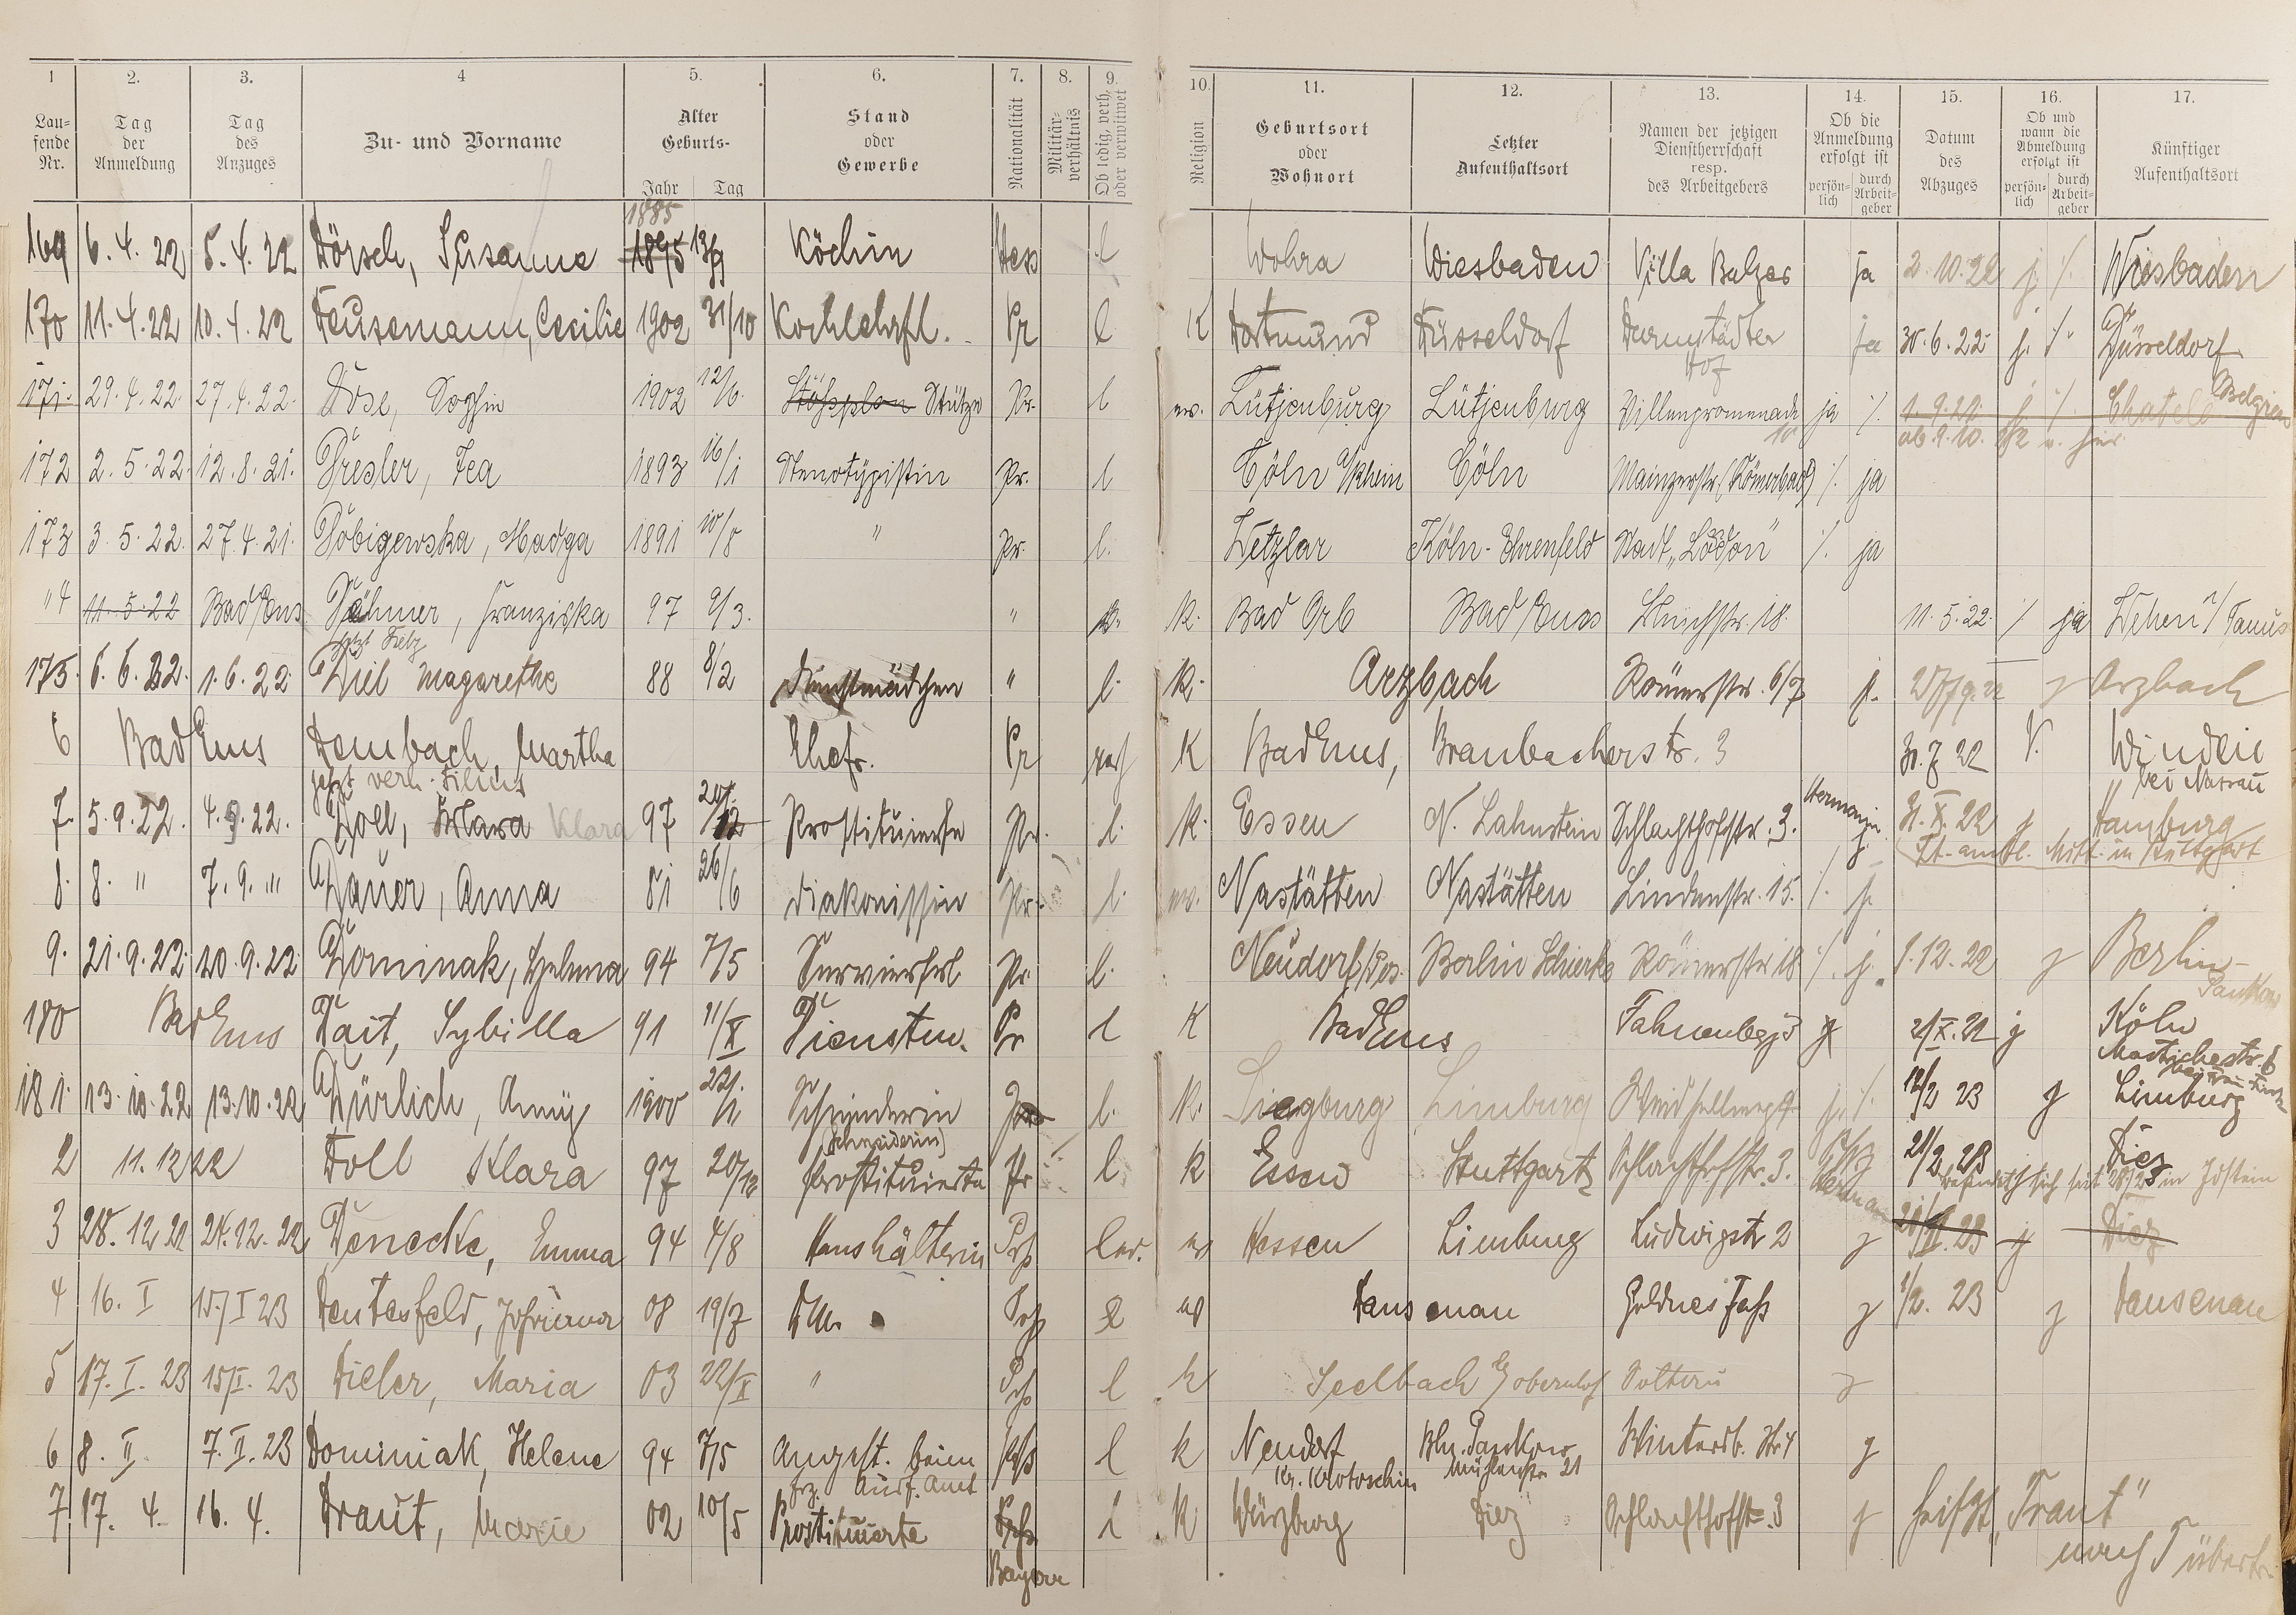 1 2. 3. 4 5. 6. 7. 8. 9. 10. 11. 12. 13. 14. 15. 16. 17.
Lau-fende Nr. Tag der Anmeldung Tag des Anzuges Zu- und Vorname Alter Geburts- Jahr Tag Stand oder Gewerbe Nationalität Militär-verhältnis Ob ledig, verh. oder verwitwet Religion Geburtsort oder Wohnort Letzter Aufenthaltsort Namen der jetzigen Dienstherrschaft resp. des Arbeitgebers Ob die Anmeldung erfolgt ist persön-lich durch Arbeit-geber Datum des Abzuges Ob und wann die Abmeldung erfolgt ist persön-lich durch Arbeit-geber Künftiger Aufenthaltsort
1885
169 6. 4. 22 5. 4. 22 Dörsch, Susanne 1875 13/9 Köchin Hess l Wohra Wiesbaden Villa Balzer ja 2. 10. 22 j. /. Wiesbaden
170 11. 4. 22 10. 4. 22 Deusemann, Cecilie 1902 31/10 Kochlehrfl. Pr l K Dortmund Düsseldorf Darmstädter Hof ja 30. 6. 22 j. /. Düsseldorf
171. 29. 4. 22. 27. 4. 22. Dose, Sophie 1902 12/6. Stütze Pr. l ev. Lütjenburg Lütjenburg Villenpromenade 10 ja /. 1. 9. 22. j /. Belgien
ab. 9. 10. 22 w. hier
172 2. 5. 22. 12. 8. 21. Dresler, Fea 1893 16/1 Stenotypistin Pr. l Cöln a/Rhein Cöln Mainzerstr. (Römerbad) /. ja
173 3. 5. 22. 27. 4. 21. Dobigewska, Madga 1891 10/8 " Pr. l. Wetzlar Köln-Ehrenfeld Stadt „London" /. ja
"4 11. 5. 22 Bad Ems Dähmer, Franziska 97 9/3. " k. K. Bad Orb Bad Ems 18. 11. 5. 22. / ja Wehen i/Taunus
175. 6. 6. 22. 1. 6. 22. Diel Magarethe 88 8/2 Dienstmädchen " l. K. Arzbach Römerstr. 6/7 j. Arzbach
6 Bad Ems Dembach, Martha Ehefr. Pr verh K Bad Ems, Braubacherstr. 3 30. 7. 22 V. Winden bei Nassau
jetzt verh. Filius
7. 5. 9. 22. 4. 9. 22. Doll, Klara Klara 97 20/12 Prostituierte Pr. l. K. Essen N. Lahnstein Schlachthofstr. 3. Hermanji j. 31. X. 22 j Hamburg
lt. amtl. Mitt. in Stuttgart
8. 8. " 7. 9. " Dauer, Anna 81 26/6 Diakonissin Pr. l. ev. Nastätten Nastätten Lindenstr. 15. /. j.
9. 21. 9. 22. 20. 9. 22 Dominak, Helena 94 7/5 Servierfrl Pr. l. Neudorf/Pos. Berlin Römerstr 18 /. j. 1. 12. 22 j Berlin-Pankow
180 Bad Ems Dait, Sybilla 91 11/X Dienstm. Pr l K Bad Ems Fahnenberg 3 j 2/X. 22 j Köln
181. 13. 10. 22 13. 10. 22 Dürlich, Anny 1900 22/11 Schneiderin l. K. Siegburg Limburg j. /. 12/2 23 j Limburg
(Schneiderin)
2 11. 12 22 Doll Klara 97 20/12 Prostituierte Pr l K Essen Stuttgart Schlachthofstr. 3. 21/2 23 Diez
befindet sich seit in Idstein
3 28. 12 22 24. 12. 22 Denecke, Emma 94 4/8 Haushälterin Prß led. ev Hessen Limburg Ludwigstr 2 j 21/II. 23 j Diez
4 16. I 15/I 23 Deutesfeld, Johanna 08 19/7 DM. Prß l ev Dausenau Goldnes Faß j 1/2. 23 j Dausenau
5 17. I. 23 15/I. 23 Dieler, Maria 03 22/X " Prß l k Seelbach b/ obernhof j
6 8. II. 7. II. 23 Dominiak, Helene 94 7/5 Angest. beim frz. Prß l k Neudorf Kr. Krotoschin Bln. Pankow Mühlenstr. 21 Winterb. Str 4 j
7 17. 4. 16. 4. Draut, Marie 02 10/5 Prostituierte Prß Bayern l K Würzburg Diez Schlachthofstr. 3 j heißt „Traut"
nach T übertr.